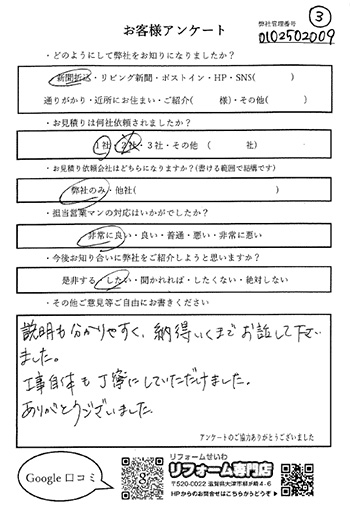 ③
お客様アンケート
弊社管理番号
0102502009
・どのようにして弊社をお知りになりましたか？
新聞折込・リビング新聞・ポストイン・HP・SNS(　　　)
通りがかり・近所にお住まい・ご紹介(　　　様)・その他(　　　)
・お見積りは何社依頼されましたか？
1社・2社・3社・その他　(　　　社)
・お見積り依頼会社はどちらになりますか？(書ける範囲で結構です)
弊社のみ・他社(　　　)
・担当営業マンの対応はいかがでしたか？
非常に良い・良い・普通・悪い・非常に悪い
・今後お知り合いに弊社をご紹介しようと思いますか？
是非する・したい・聞かれれば・したくない・絶対しない
・その他ご意見等ご自由にお書きください
説明も分かりやすく、納得いくまでお話して下さい
ました。
工事自体も丁寧にしていただけました。
ありがとうございました。
アンケートのご協力ありがとうございました
Google 口コミ
リフォームせいわ
リフォーム専門店
〒520-0022 滋賀県大津市柳が崎4-6
HPからのお問合せはこちらからどうぞ▶